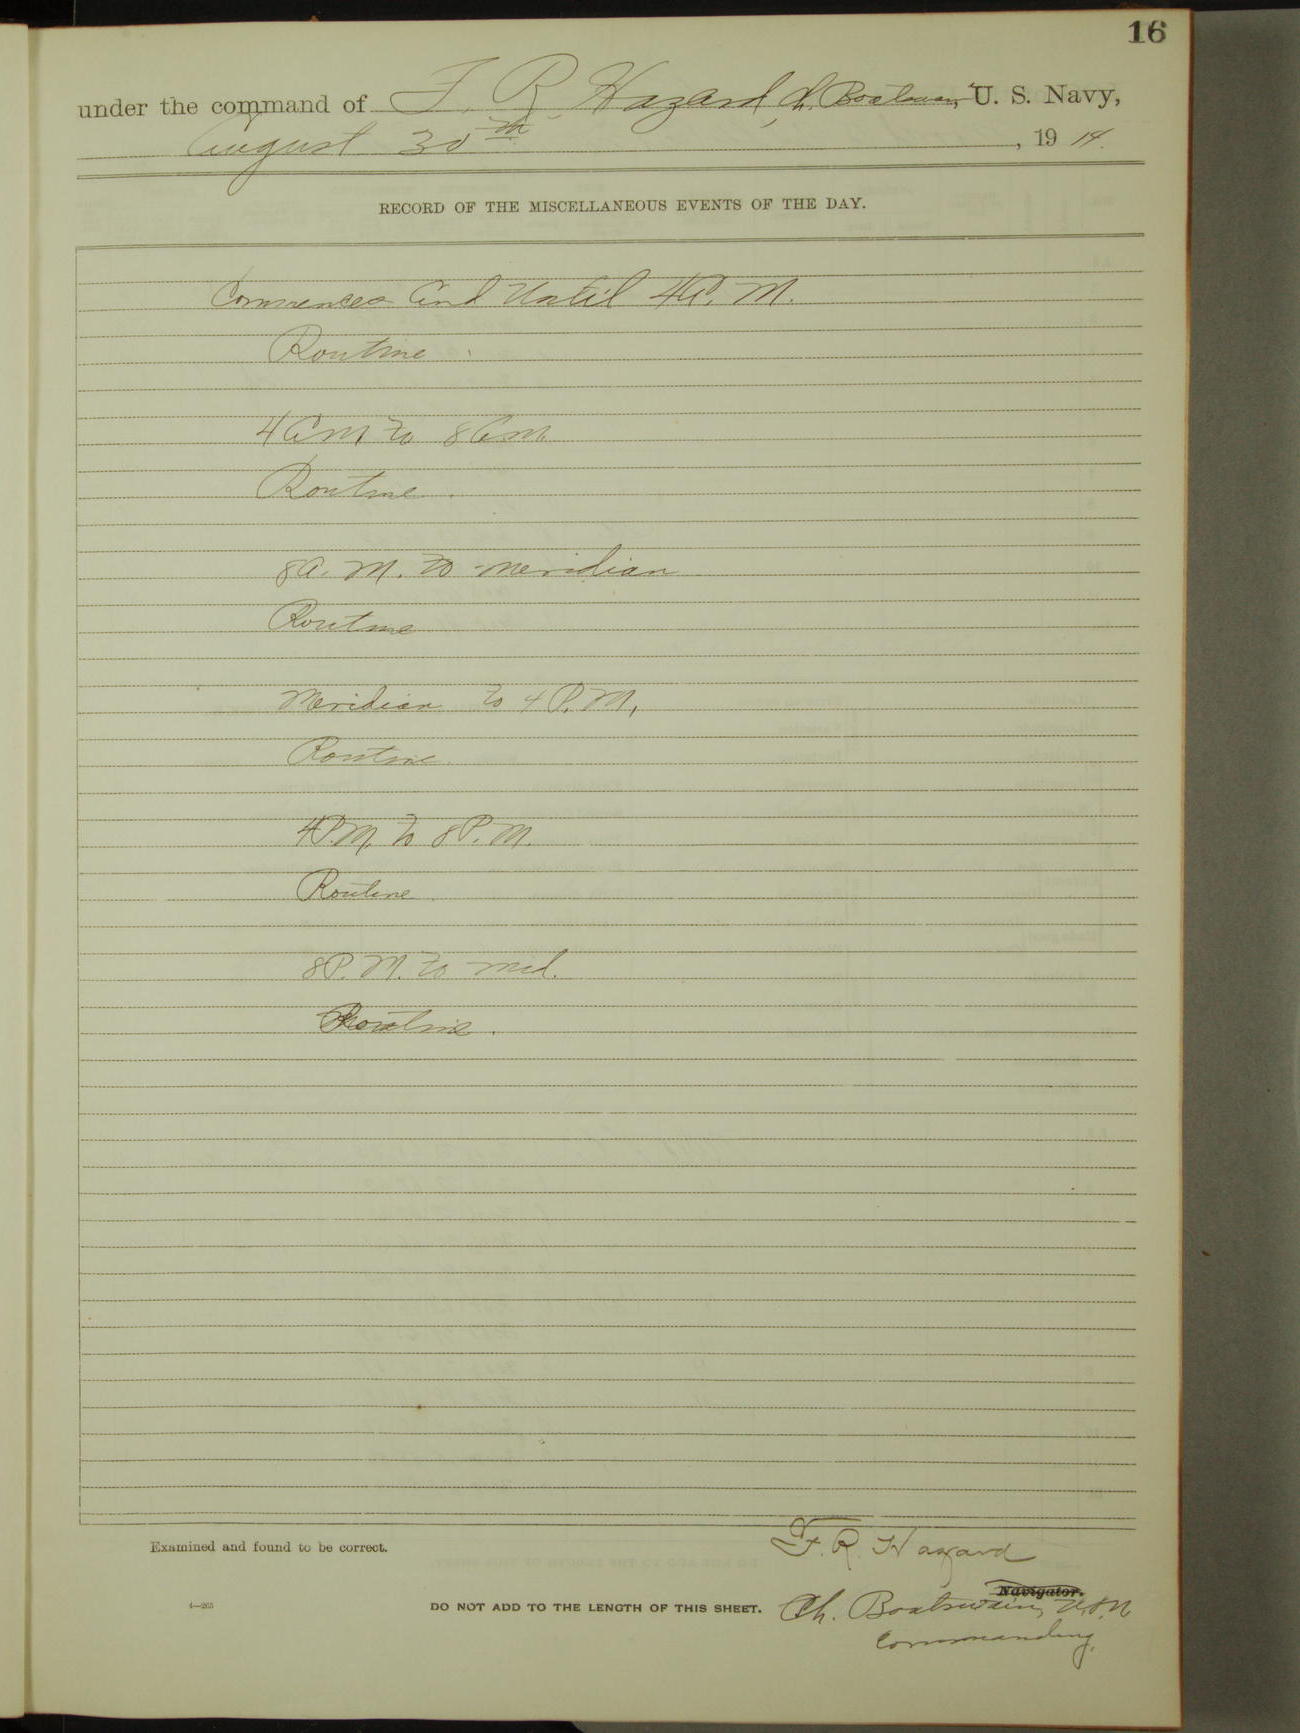 16
under the command of F. R. Hazard, Ch. Boatswain, U. S. Navy,
August 30th, 1914.
RECORD OF THE MISCELLANEOUS EVENTS OF THE DAY.
Commences and Until 4 A. M.
Routine.
4 A M to 8 A m.
Routine.
8 A. M. to meridian
Routine
Meridian to 4 P. M.
Routine.
4 P. M. to 8 P. M.
Routine.
8 P. M. to mid.
Routine.
F. R. Hazard
Examined and found to be correct.
Navigator.
4—265
DO NOT ADD TO THE LENGTH OF THIS SHEET.
Ch. Boatswain, U.S.N
Commanding.